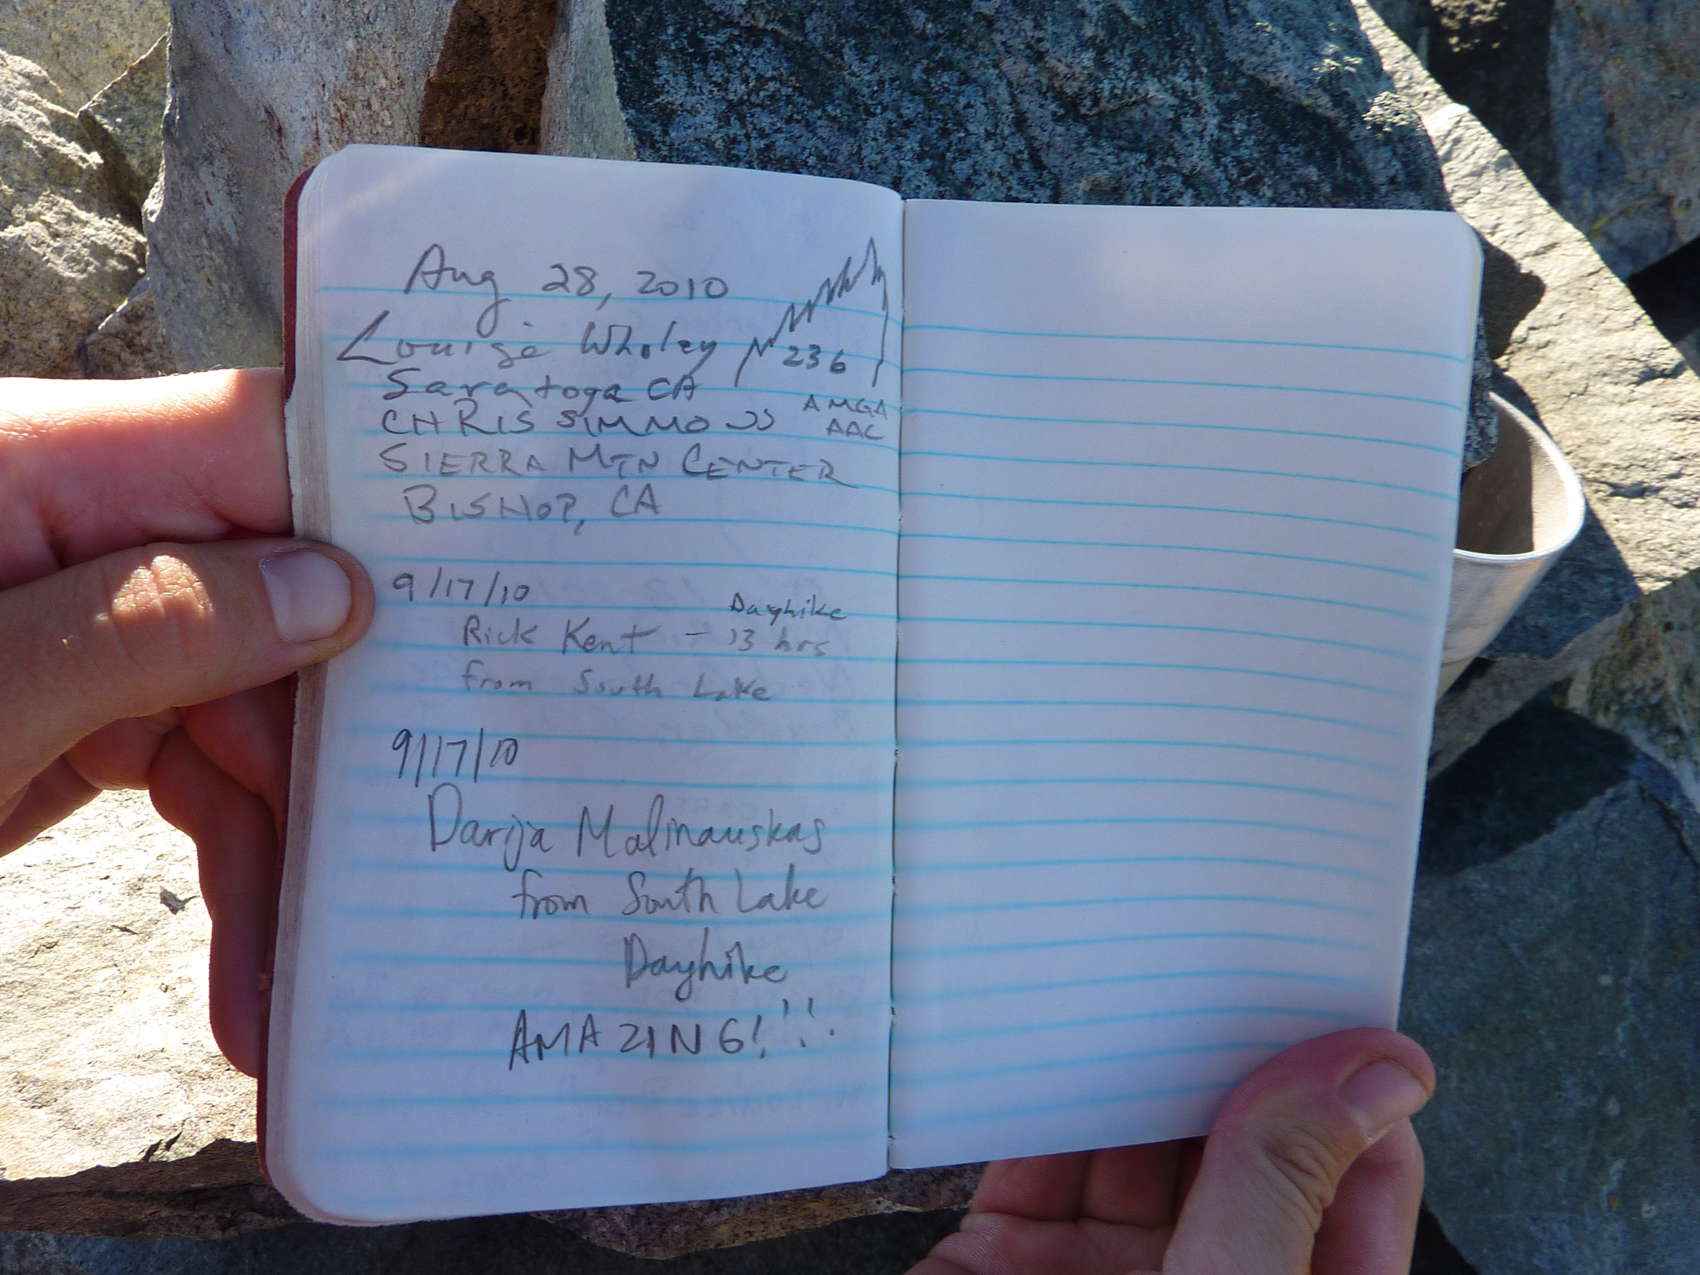 Aug 28, 2010
Louise Wholey 236
Saratoga CA
CHRIS SIMMONS AMGA
AAC
SIERRA MTN CENTER
BISHOP, CA
9/17/10
Dayhike
Rick Kent - 13 hrs
from South Lake
9/17/10
Darija Malinauskas
from South Lake
Dayhike
AMAZING!!!!